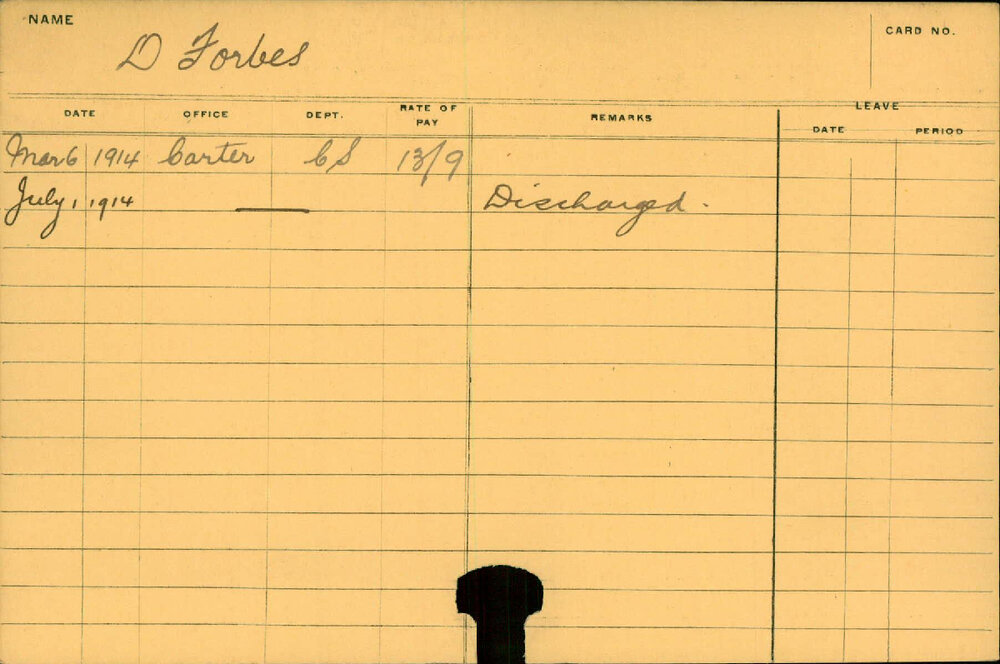 NAME
D Forbes
CARD NO.
DATE OFFICE DEPT. RATE OF PAY REMARKS LEAVE
DATE PERIOD
Mar 6 1914 Carter CS 13/9
July 1 1914 — Discharged.